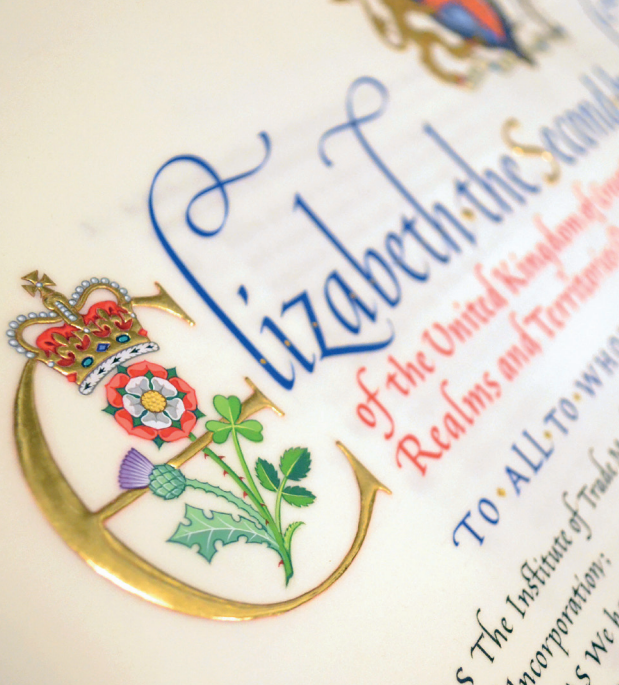 Elizabeth the Second
of the United Kingdom of
Realms and Territories
TO·ALL·TO·WHOM
The Institute of Trade
Incorporation:
We